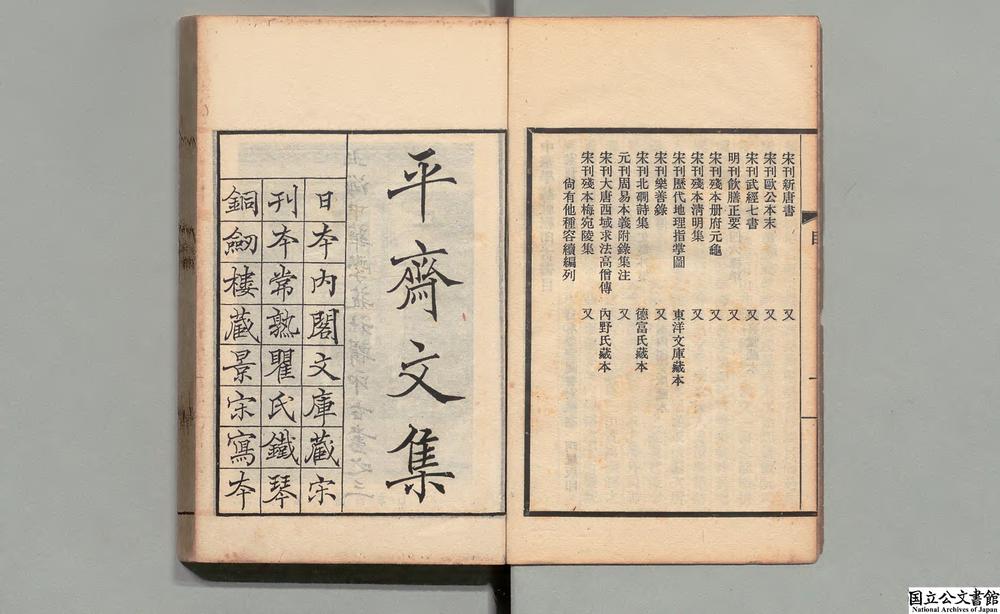 宋刊新唐書 又
宋刊歐公本末 又
宋刊武經七書 又
明刊飲膳正要 又
宋刊殘本册府元龜 又
宋刊殘本清明集 又
宋刊歷代地理指掌圖 東洋文庫藏本
宋刊樂善錄 又
宋刊北磵詩集 德富氏藏本
元刊周易本義附錄集注 又
宋刊大唐西域求法高僧傳 內野氏藏本
宋刊殘本梅宛陵集 又
尙有他種容續編列
目
一
平齋文集
日本內閣文庫藏宋
刊本常熟瞿氏鐵琴
銅劒樓藏景宋寫本
国立公文書館
National Archives of Japan